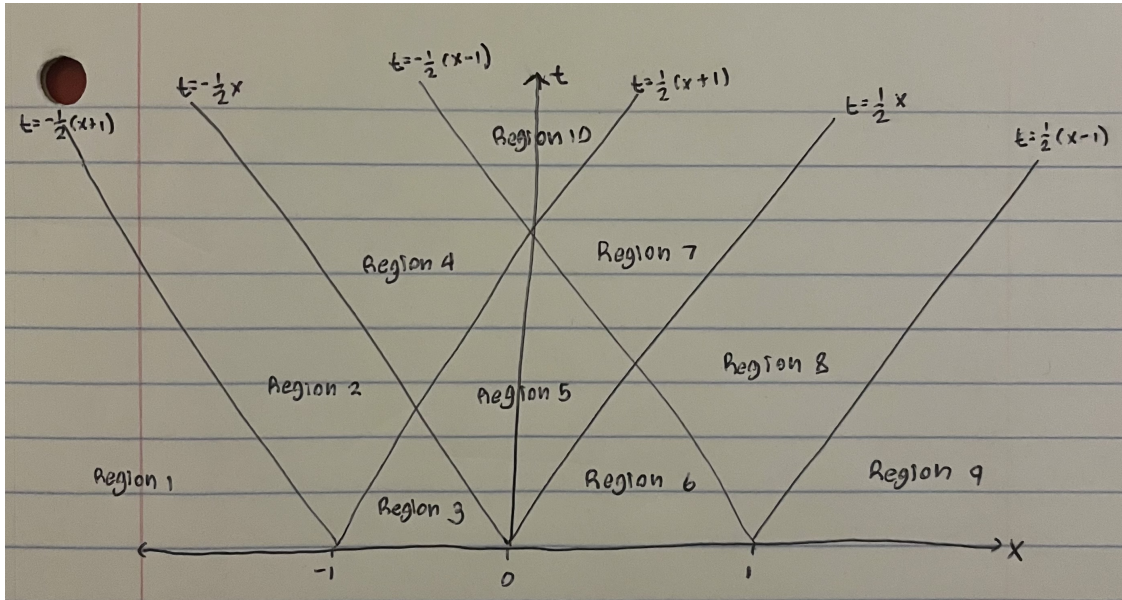 t=-½(x-1)
t
t=½(x+1)
t=-½x
t=½x
t=-½(x+1)
t=½(x-1)
Region 10
Region 4
Region 7
Region 8
Region 2
Region 5
Region 1
Region 6
Region 9
Region 3
x
-1
0
1